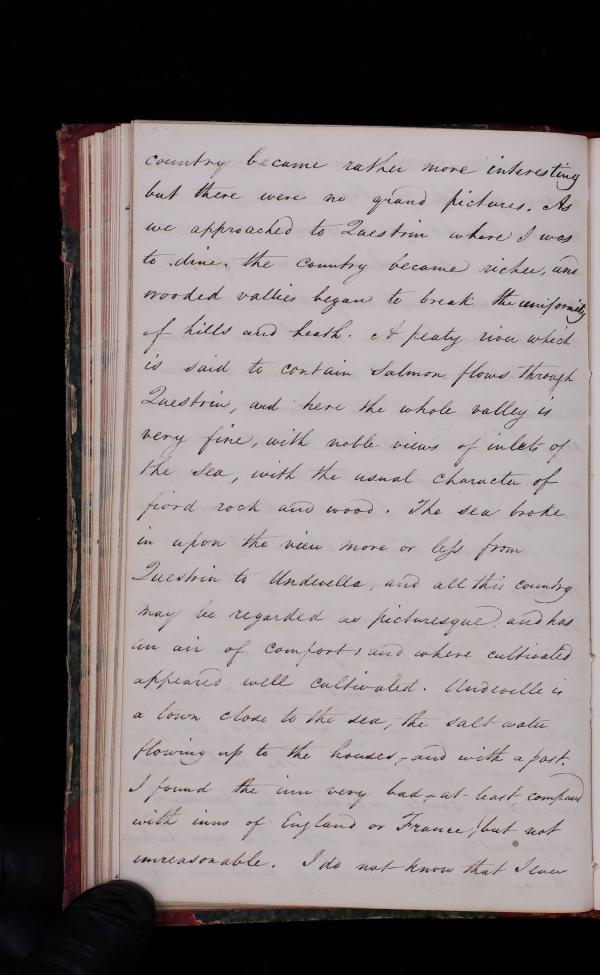 country became rather more interesting
but there were no grand pictures. As
we approached to Questrin where I was
to dine. the country became richer, and
wooded vallies began to break the uniformity
of hills and heath. A peaty river which
is said to contain Salmon flows through
Questrin, and here the whole valley is
very fine, with noble views of inlets of
the sea, with the usual character of
fiord rock and wood. The sea broke
in upon the view more or less from
Questrin to Undevella, and all this country
may be regarded as picturesque, and has
an air of comfort, and where cultivated
appeared well cultivated. Undeville is
a town close to the sea, the salt water
flowing up to the houses, and with a port.
I found the inn very bad, at least compared
with inns of England or France, but not
unreasonable. I do not know that I ever